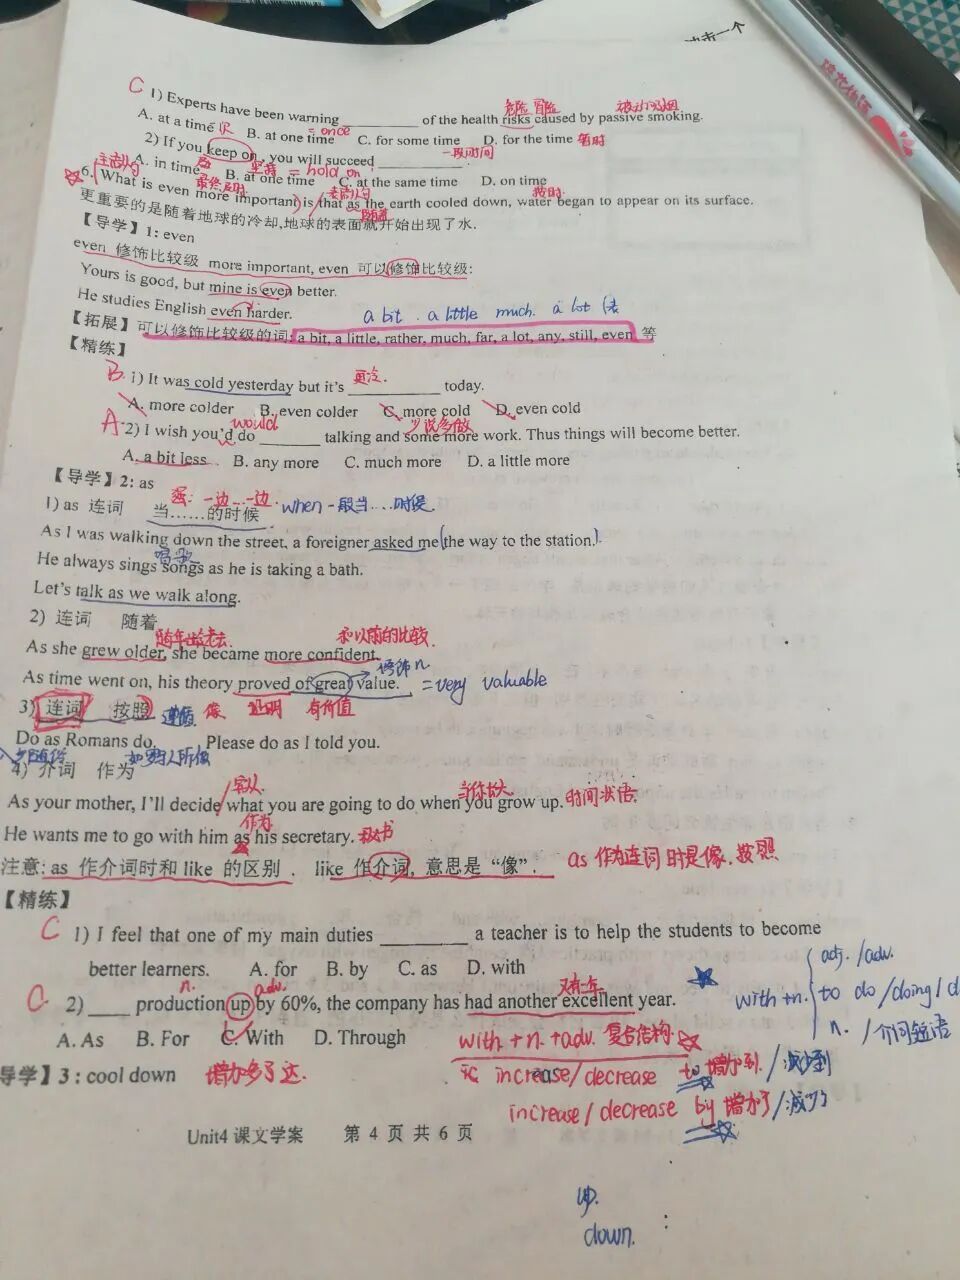 C 1) Experts have been warning ________ of the health risks caused by passive smoking.
危险 冒险 被动吸烟
A. at a time B. at one time = once C. for some time D. for the time 暂时
2) If you keep on, you will succeed ________.
坚持 = hold on 一段时间
A. in time B. at one time C. at the same time D. on time
最终,及时 按时.
主语从句 表语从句
6. What is even more important is that as the earth cooled down, water began to appear on its surface.
随着
更重要的是随着地球的冷却,地球的表面就开始出现了水.
【导学】1: even
even 修饰比较级 more important, even 可以修饰比较级:
Yours is good, but mine is even better.
He studies English even harder.
a bit . a little much. a lot
【拓展】可以修饰比较级的词: a bit, a little, rather, much, far, a lot, any, still, even 等
【精练】
B. 1) It was cold yesterday but it's ________ today.
更冷.
A. more colder B. even colder C. more cold D. even cold
would 少说多做
A. 2) I wish you'd do ________ talking and some more work. Thus things will become better.
A. a bit less B. any more C. much more D. a little more
【导学】2: as
1) as 连词 当……的时候 一边…一边 when 一般当……时候.
As I was walking down the street, a foreigner asked me (the way to the station.)
唱歌
He always sings songs as he is taking a bath.
Let's talk as we walk along.
2) 连词 随着
随年龄老去 和以前的比较
As she grew older, she became more confident.
修饰 n.
As time went on, his theory proved of great value. = very valuable
3) 连词 按照 遵循 像 证明 有价值
Do as Romans do. Please do as I told you.
入乡随俗 如罗马人所做
4) 介词 作为
宾从 当你长大
As your mother, I'll decide what you are going to do when you grow up. 时间状语.
作为
He wants me to go with him as his secretary. 秘书
注意: as 作介词时和 like 的区别 . like 作介词, 意思是 “像”. as 作为连词时是像. 按照
【精练】
C 1) I feel that one of my main duties ________ a teacher is to help the students to become
better learners. A. for B. by C. as D. with
n. adv. 又有一年
C. 2) ____ production up by 60%, the company has had another excellent year.
A. As B. For C. With D. Through
with +n. adj. /adv.
to do /doing/
n. / 介词短语
with + n. + adv. 复合结构
导学】3 : cool down 增加多了 达.
increase/ decrease to 增加到. / 减少到
increase/ decrease by 增加了 / 减少了
Unit4 课文学案 第 4 页 共 6 页
down.